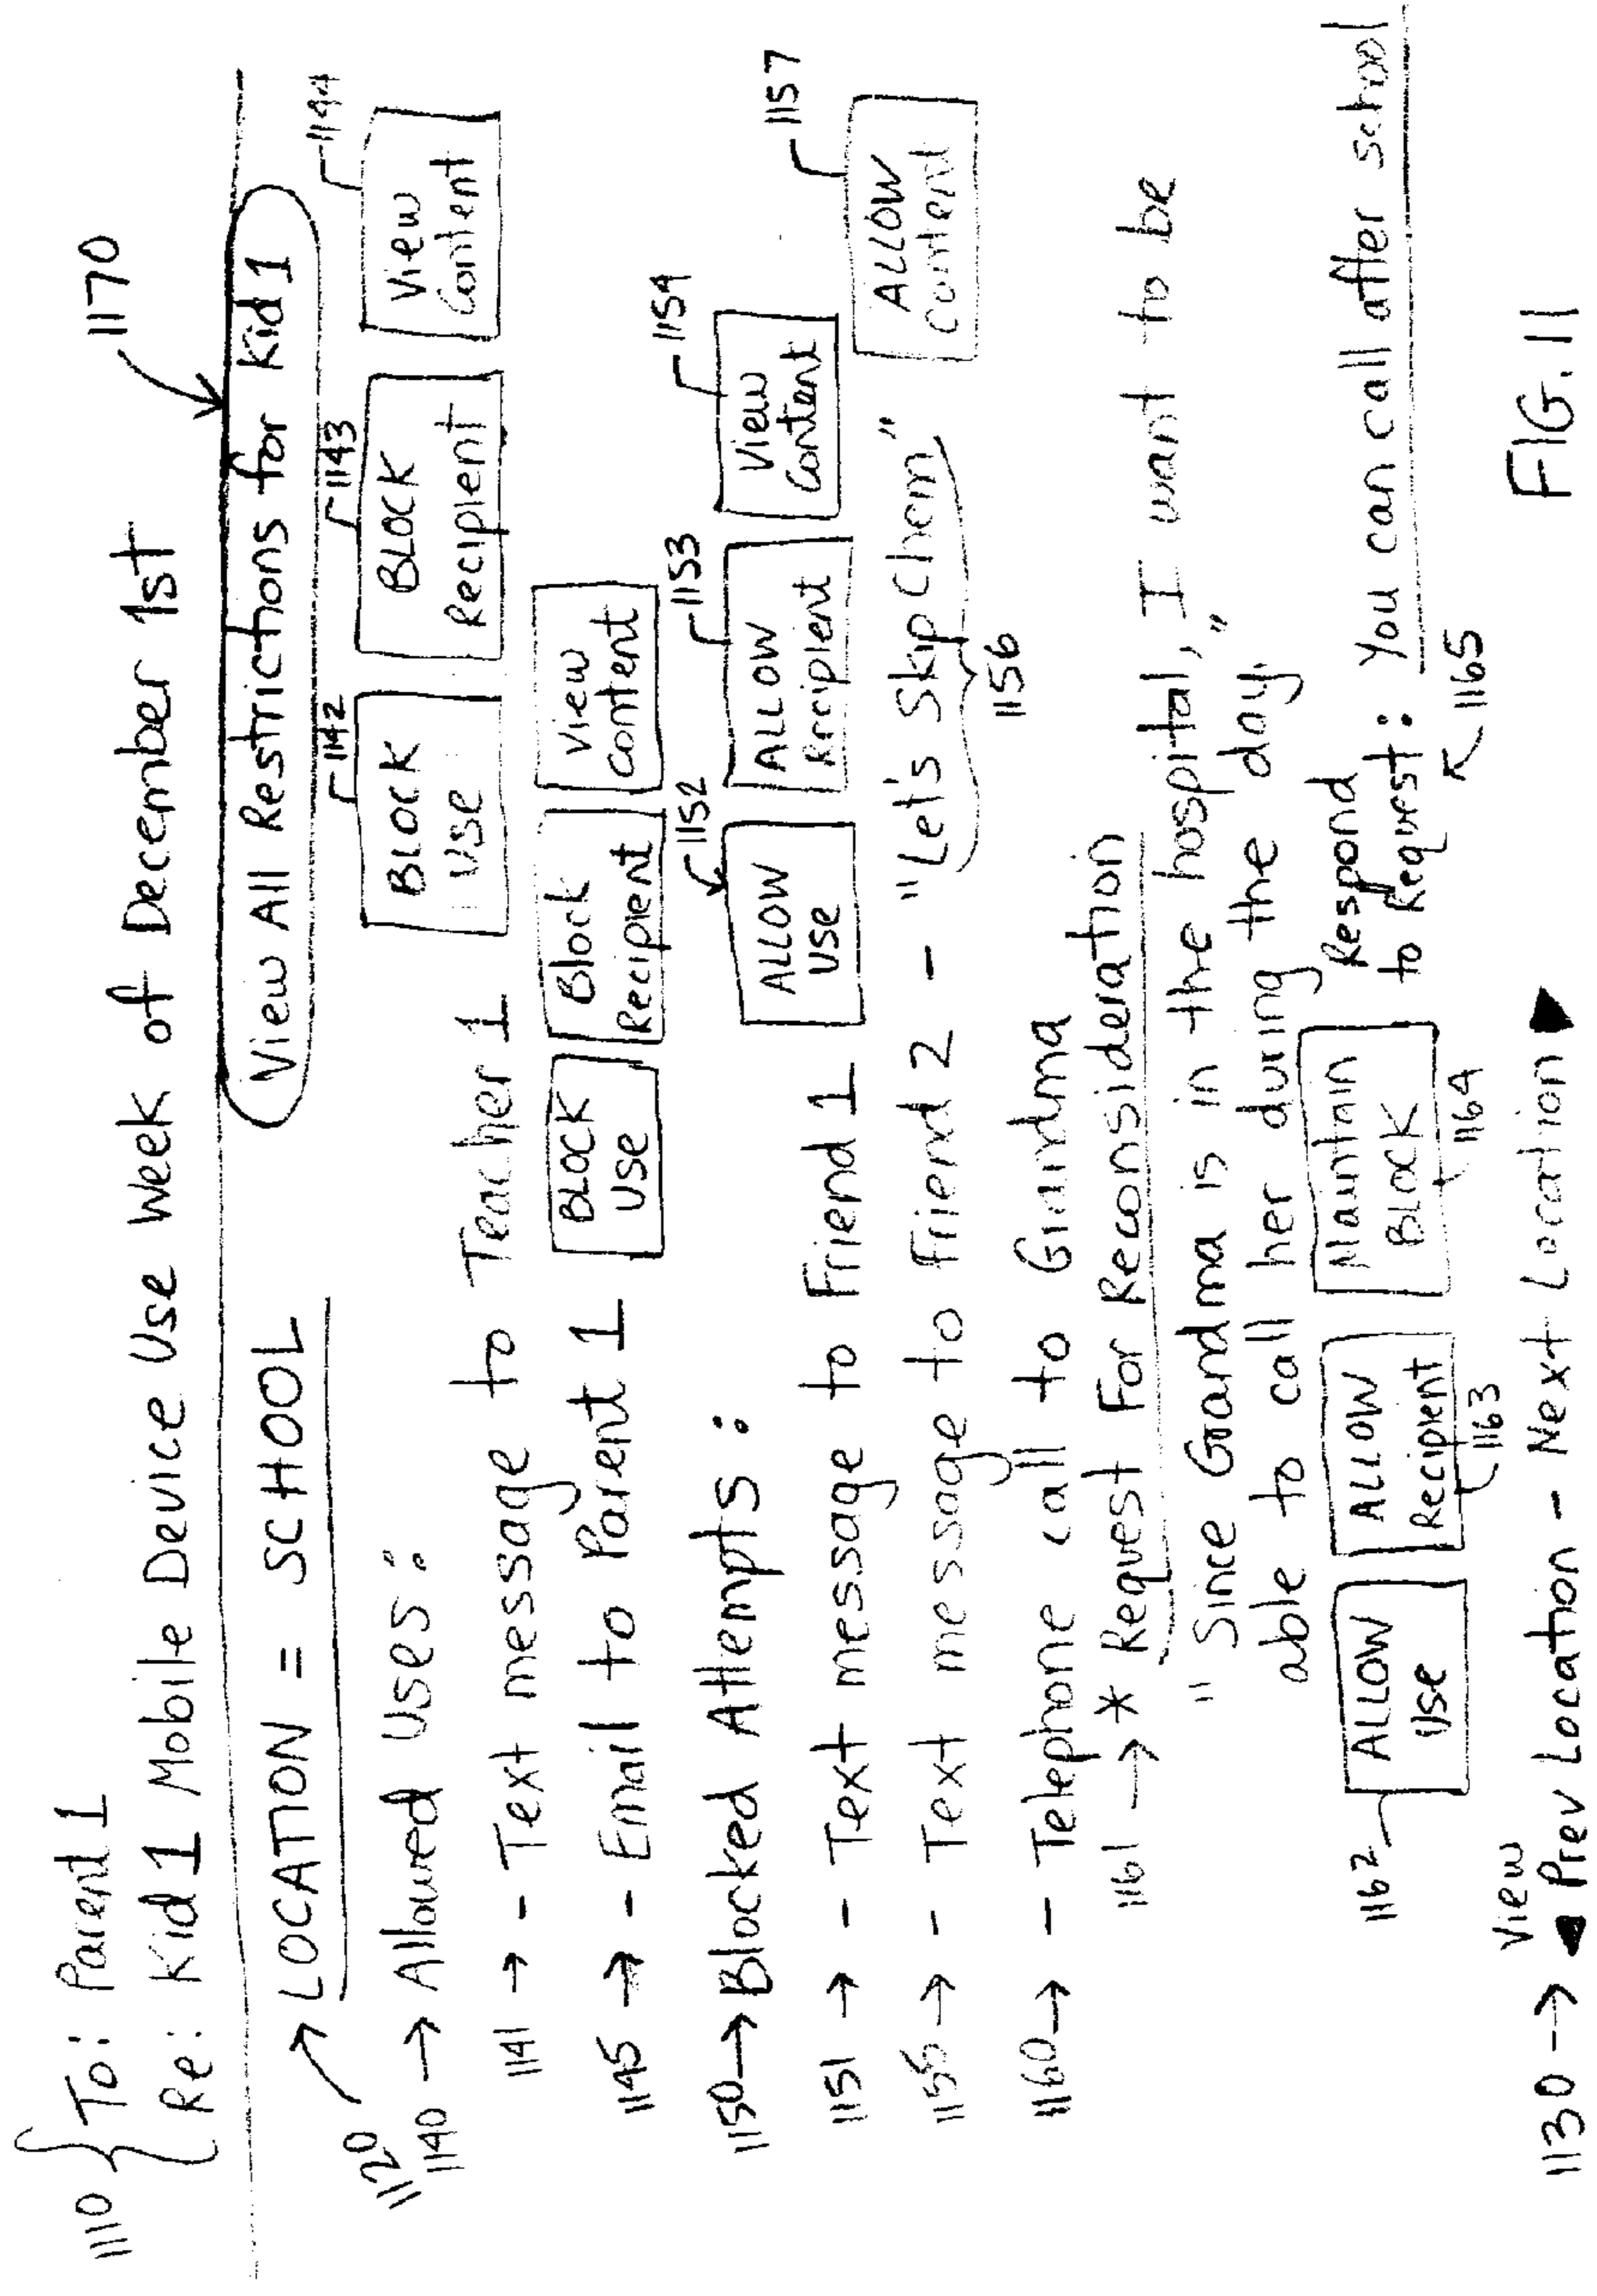 1110 { To: Parent 1
Re: Kid 1 Mobile Device Use Week of December 1st
1170
View All Restrictions for Kid 1
1120
LOCATION = SCHOOL
1140 → Allowed Uses:
1142 1143 1144
1141 → - Text message to Teacher 1 BLOCK Use BLOCK Recipient View Content
1145 → - Email to Parent 1 BLOCK Use Block Recipient View Content
1150 → Blocked Attempts:
1152 1153 1154
1151 → - Text message to Friend 1 ALLOW Use ALLOW Recipient View Content
1155 → - Text message to Friend 2 - "Let's Skip Chem" ALLOW Content 1157
1156
1160 → - Telephone call to Grandma
1161 → * Request For Reconsideration
"Since Grandma is in the hospital, I want to be
able to call her during the day."
1162 ALLOW Use ALLOW Recipient Maintain BLOCK Respond to Request: You can call after school
1163 1164 1165
View
1130 → ◀ Prev Location - Next Location ▶
FIG. 11